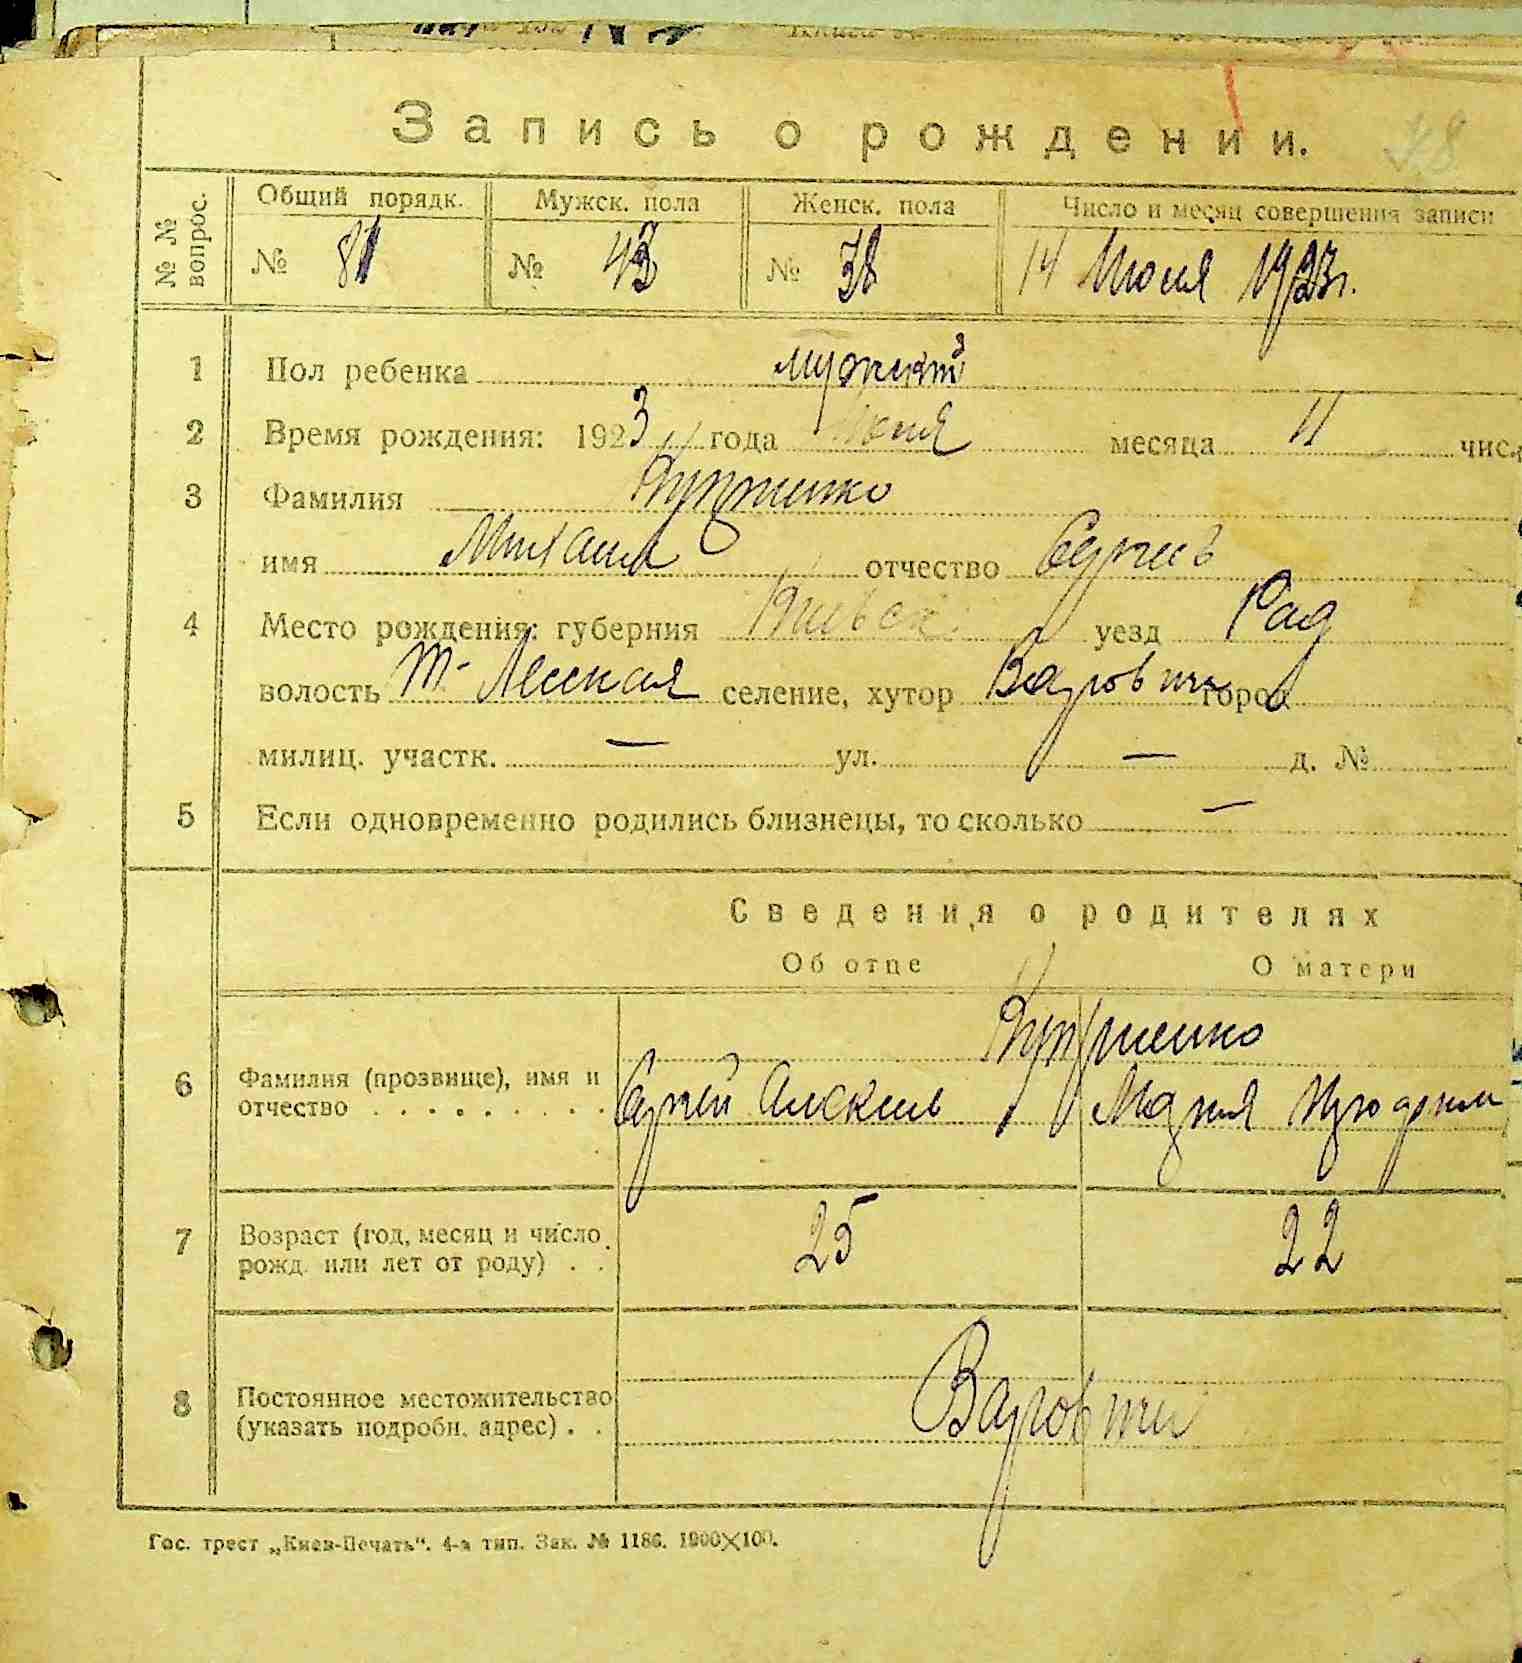 Запись о рождении.
№ № вопрос.
Общий порядк. Мужск. пола Женск. пола Число и месяц совершения записи
№ 81 № 43 № 38 14 Июня 1923 г.
1 Пол ребенка мужской
2 Время рождения: 1923 года Июня месяца 11 числ
3 Фамилия
имя Михаил отчество Сергеев
4 Место рождения: губерния Киевск. уезд Рад
волость селение, хутор Варовичи город
милиц. участк. — ул. — д. №
5 Если одновременно родились близнецы, то сколько —
Сведения о родителях
Об отце О матери
6 Фамилия (прозвище), имя и
отчество . . . . . . . . . Сергей Алексеев Мария
7 Возраст (год, месяц и число
рожд. или лет от роду) . . 25 22
8 Постоянное местожительство
(указать подробн. адрес) . . Варовичи
Гос. трест „Киев-Печать“. 4-я тип. Зак. № 1186. 1000×100.